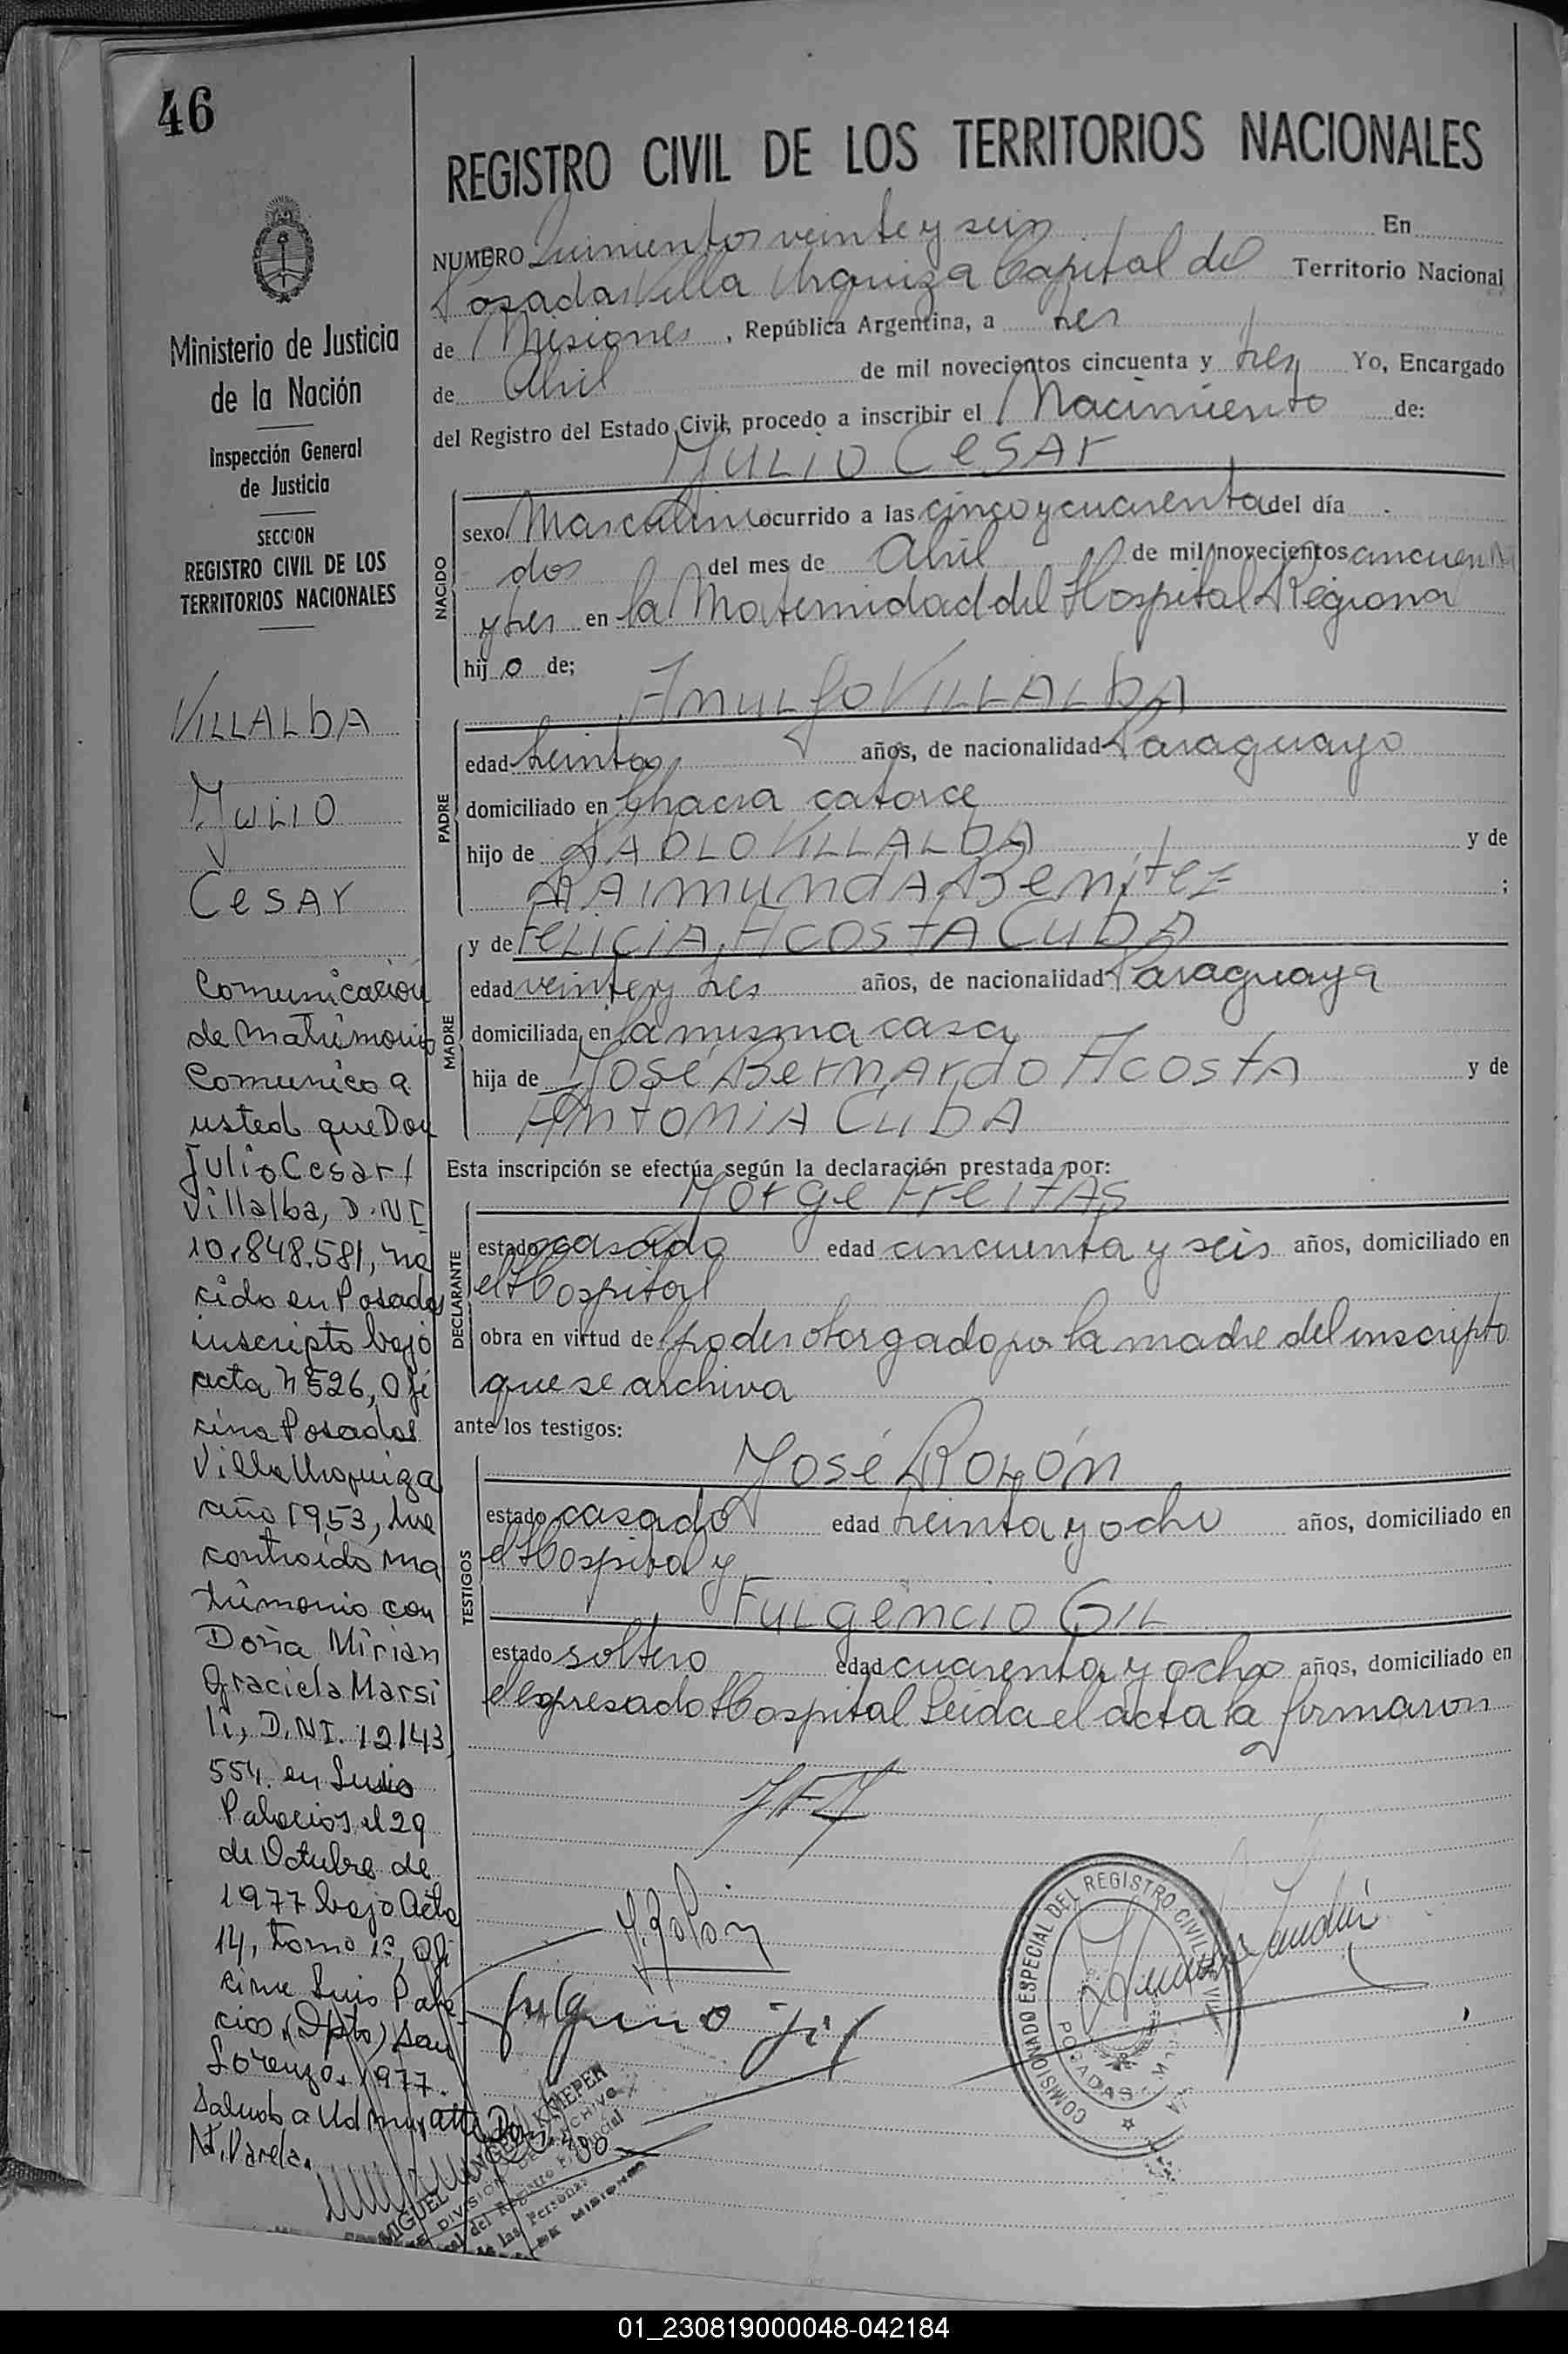 46
REGISTRO CIVIL DE LOS TERRITORIOS NACIONALES
NUMERO Quinientos veinte y seis En
Posadas Villa Urquiza Capital del Territorio Nacional
de Misiones, República Argentina, a tres
de Abril de mil novecientos cincuenta y tres Yo, Encargado
del Registro del Estado Civil, procedo a inscribir el Nacimiento de:
JULIO CESAR
NACIDO
sexo Masculino ocurrido a las cinco y cuarenta del día
dos del mes de Abril de mil novecientos cincuenta
y tres en la Maternidad del Hospital Regional
hijo de;
ARNULFO VILLALBA
PADRE
edad treinta años, de nacionalidad Paraguayo
domiciliado en Chacra catorce
hijo de PABLO VILLALBA y de
RAIMUNDA BENITEZ ;
MADRE
y de FELICIA ACOSTA CUBA
edad veinte y tres años, de nacionalidad Paraguaya
domiciliada en la misma casa
hija de JOSÉ BERNARDO ACOSTA y de
ANTONIA CUBA
Esta inscripción se efectúa según la declaración prestada por:
JORGE FREITAS
DECLARANTE
estado casado edad cincuenta y seis años, domiciliado en
el Hospital
obra en virtud del poder otorgado por la madre del inscripto
que se archiva
ante los testigos:
TESTIGOS
JOSÉ ROLÓN
estado casado edad treinta y ocho años, domiciliado en
el Hospital y
FULGENCIO GIL
estado soltero edad cuarenta y ocho años, domiciliado en
el expresado Hospital Leida el acta la firmaron
J. Rolon
Fulgencio Gil
COMISIONADO ESPECIAL DEL REGISTRO CIVIL
POSADAS
Ministerio de Justicia
de la Nación
Inspección General
de Justicia
SECCION
REGISTRO CIVIL DE LOS
TERRITORIOS NACIONALES
VILLALBA
JULIO
CESAR
Comunicación
de Matrimonio
Comunico a
usted que Don
Julio Cesar
Villalba, D.NI
10.848.581, na
cido en Posadas
inscripto bajo
acta n 526, Ofi
cina Posadas
Villa Urquiza
año 1953, ha
contraido ma
trimonio con
Doña Mirian
Graciela Marsi
li, D.NI. 12143
554. en Luis
Palacios el 29
de Octubre de
1977 bajo Acta
14, tomo 1º, Ofi
cina Luis Pala
cios (Dpto) San
Lorenzo. 1977.
Saludo a Ud muy atte
N. Varela.
MIGUEL ANGEL KNEPER
DIVISION ARCHIVO
del Registro Provincial
de las Personas
DE MISIONES
01_230819000048-042184